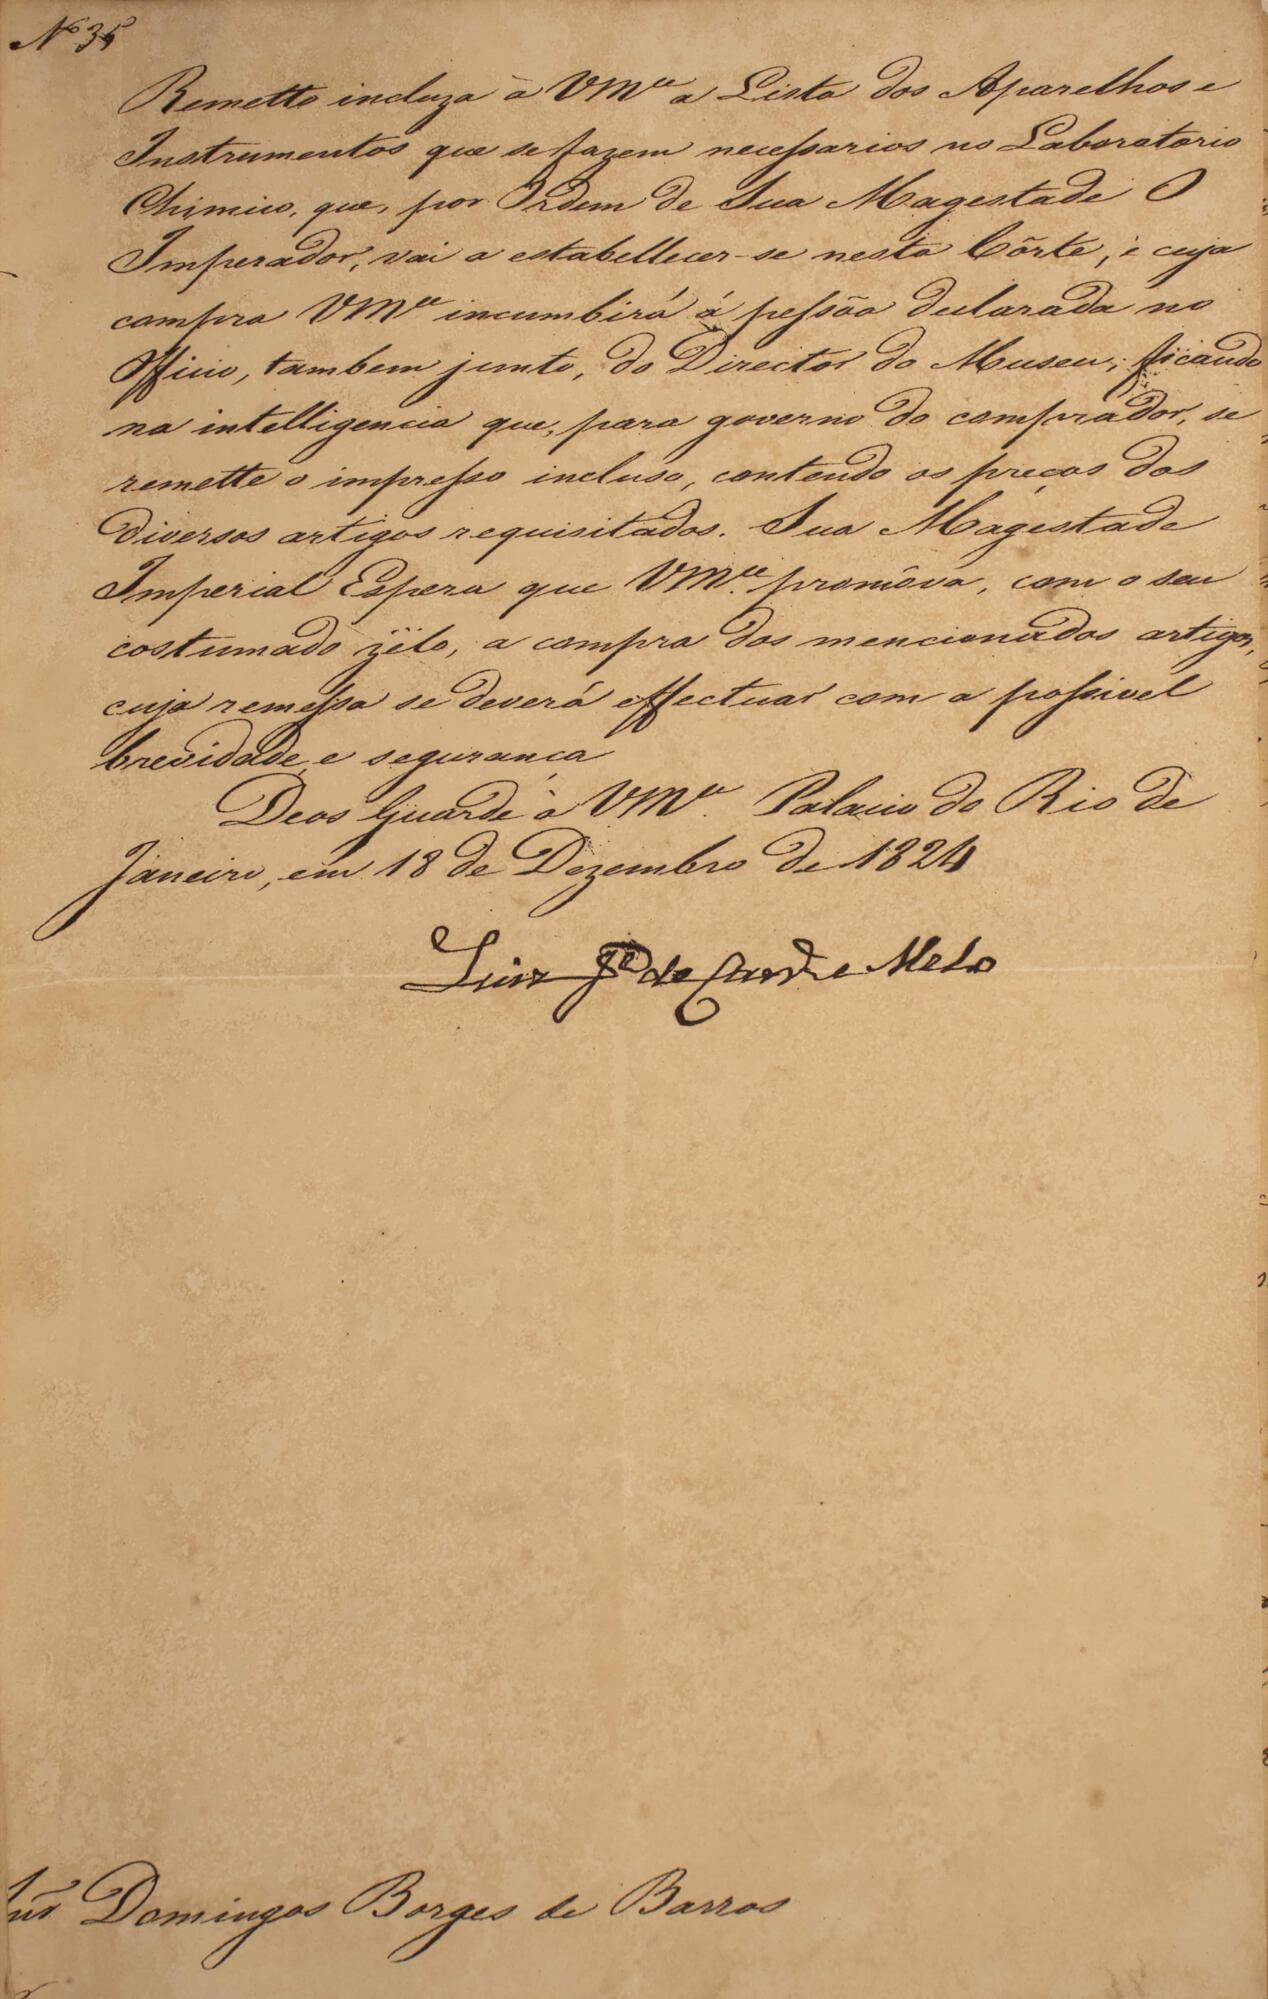 Nº 35
Remetto incluza à VMce a Lista dos Aparelhos e
Instrumentos que se fazem necessarios no Laboratorio
Chimico, que, por Ordem de Sua Magestade O
Imperador, vai a estabellecer-se nesta Côrte, e cuja
compra VMce incumbirá á pessôa declarada no
Officio, tambem junto, do Director do Museu; ficando
na intelligencia que, para governo do comprador, se
remette o impresso incluso, contendo os preços dos
diversos artigos requisitados. Sua Magestade
Imperial Espera que VMce. promôva, com o seu
costumado zêlo, a compra dos mencionados artigos,
cuja remessa se deverá effectuar com a possivel
brevidade, e segurança
Deos Guarde à VMce. Palacio do Rio de
Janeiro, em 18 de Dezembro de 1824
Luiz Je de Carvo e Mello
Snr Domingos Borges de Barros